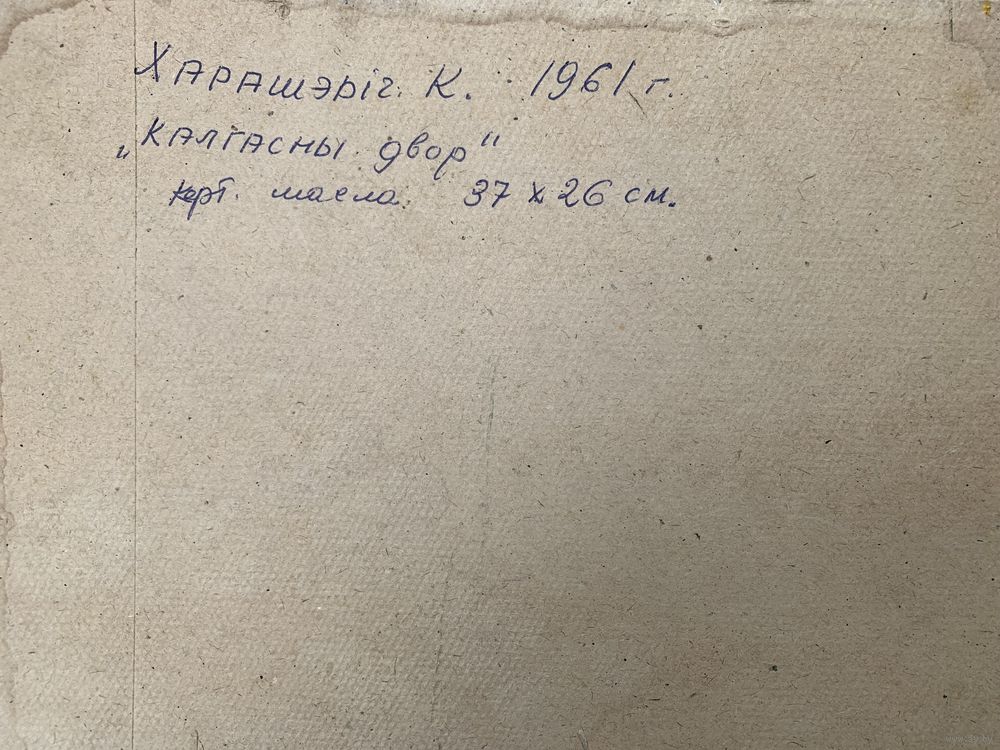 ХАРАШЭВІЧ. К. 1961 г.
„КАЛГАСНЫ двор"
карт. масла. 37 х 26 см.